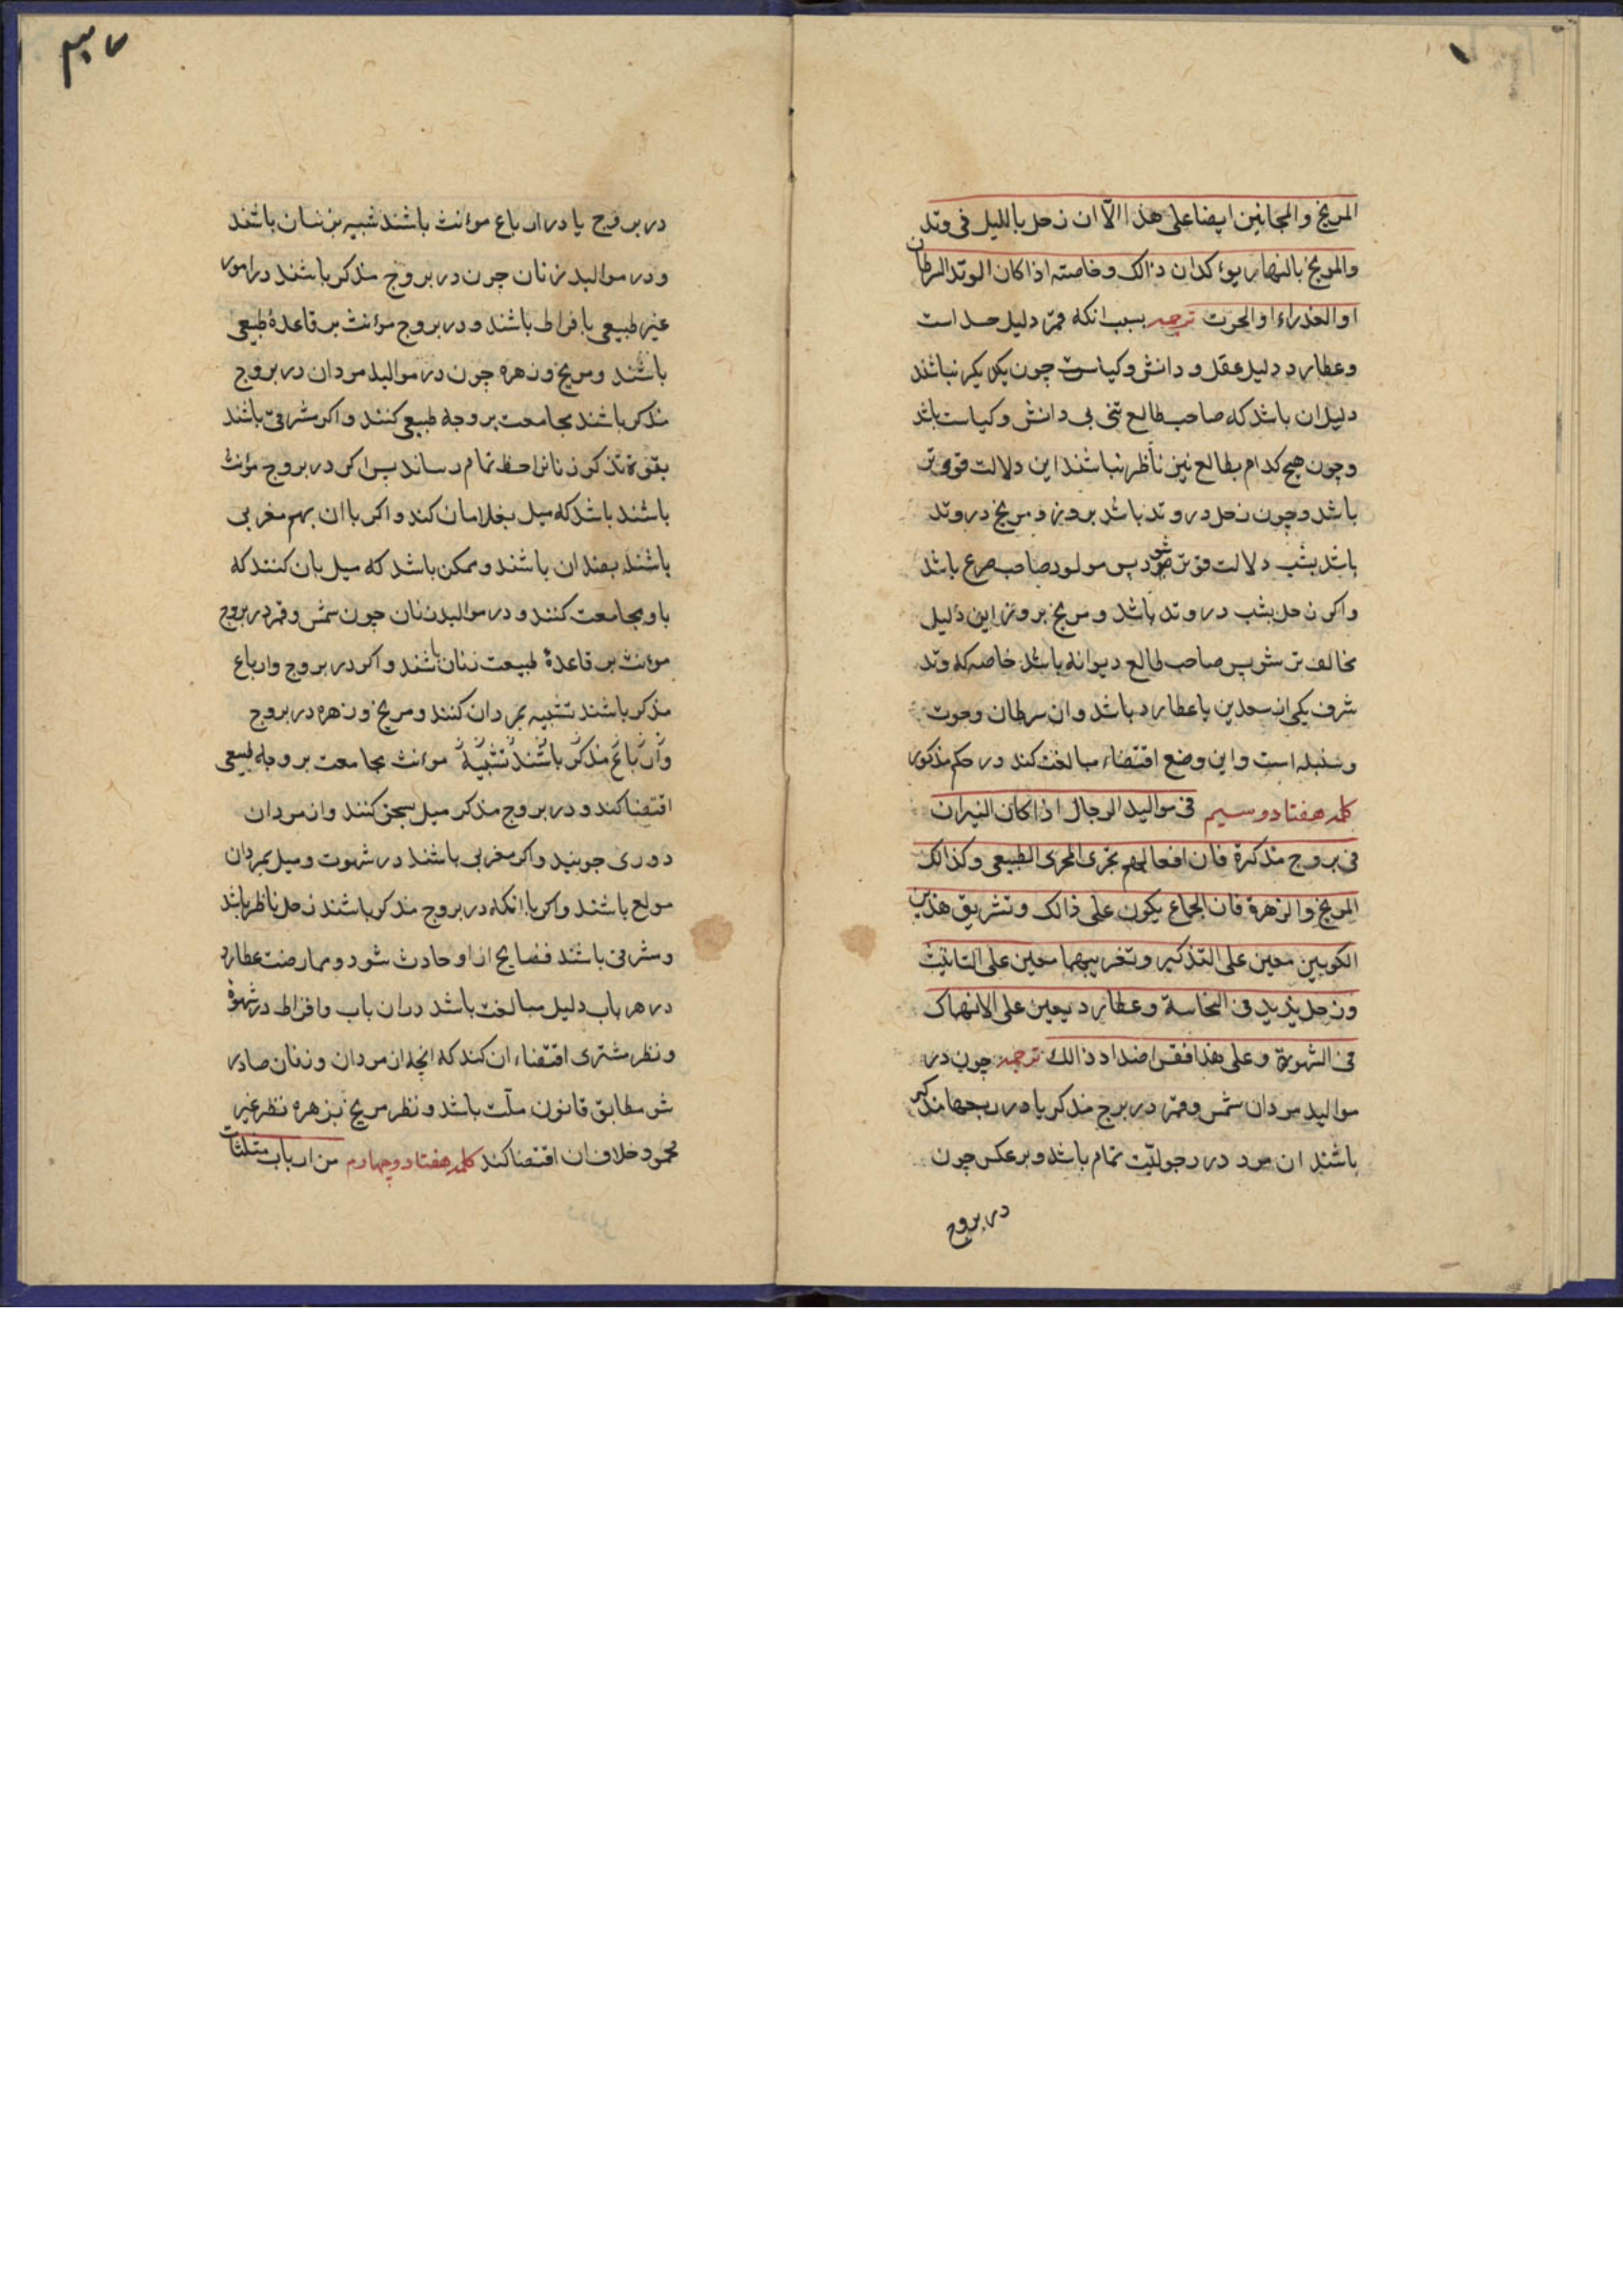 المریخ والمجانین ایضا علی هذا الّا ان زحل باللیل فی وتد
والمریخ بالنهار یوءکدان ذالک وخاصته اذا کان الوتد السرطان
او العذراء او الحوت ترجمه بسبب انکه قمر دلیل حس است
وعطارد دلیل عقل و دانش وکیاست چون بیکدیکر نباشند
دلیل ان باشد که صاحب طالع بی دانش وکیاست باشد
وچون هیچ کدام بطالع نیز ناظر نباشند این دلالت قوی‌تر
باشد وچون زحل در وتد باشد بروز و مریخ در وتد
باشد بشب دلالت قوی‌تر شود پس مولود صاحب صرع باشد
واکر زحل بشب در وتد باشد و مریخ بروز این دلیل
مخالف‌تر شو پس صاحب طالع دیوانه باشد خاصه که وتد
شرف یکی از سعدین یا عطارد باشد وان سرطان وحوت
وسنبله است واین وضع اقتضاء مبالغت کند در حکم مذکور
کلمه هفتاد وسیم فی موالید الرجال اذا کان النیران
فی بروج مذکرة فان افعالهم تجری المجری الطبیعی وکذالک
المریخ والزهرة فان الجماع یکون علی ذالک وتشریق هذین
الکوبین معین علی التذکیر وتغریبهما معین علی التانیث
وزحل یزید فی النحاسة وعطارد یعین علی الانهماک
فی الشهوة وعلی هذا فقس اضداد ذالک ترجمه چون در
موالید مردان شمس وقمر در برج مذکر یا در ربعها مذکر
باشند ان مرد در رجولیّت تمام باشد وبرعکس چون
در بروج
در بروج یا در ارباع موءنث باشند شبیه بزنان باشند
ودر موالید زنان چون در بروج مذکر باشند در امور
غیر طبیعی بافراط باشند ودر بروج موءنث بر قاعدهٔ طبیعی
باشند ومریخ وزهره چون در موالید مردان در بروج
مذکر باشند مجامعت بر وجه طبیعی کنند واکر شرقی باشند
بقوة تذکر زنانرا حظ تمام رساند پس اکر در بروج موءنث
باشند باشد که میل بغلامان کند واکر با ان بهم مغربی
باشند بضد ان باشند وممکن باشد که میل بان کنند که
با او مجامعت کنند ودر موالید زنان چون شمس وقمر در بروج
موءنث بر قاعدهٔ طبیعت زنان باشند واکر در بروج وارباع
مذکر باشند تشبیه بمردان کنند ومریخ وزهره در بروج
وارباع مذکر باشند تشبیه موءنث مجامعت بر وجه طبیعی
اقتضا کند ودر بروج مذکر میل بسحق کنند واز مردان
دوری جویند واکر مغربی باشند در شهوت ومیل بمردان
مولع باشند واکر با انکه در بروج مذکر باشند زحل ناظر باشد
ومشرقی باشند فضایح از او حادث شود وممارضت عطارد
در هر باب دلیل مبالغت باشد دران باب وافراط در شهوة
ونظر مشتری اقتضاء ان کند که انچه از مردان وزنان صادر
شو مطابق قانون ملّت باشد ونظر مریخ بزهره نظر غیر
محمود خلاف ان اقتضا کند کلمه هفتاد وچهارم من ارباب مثلثات